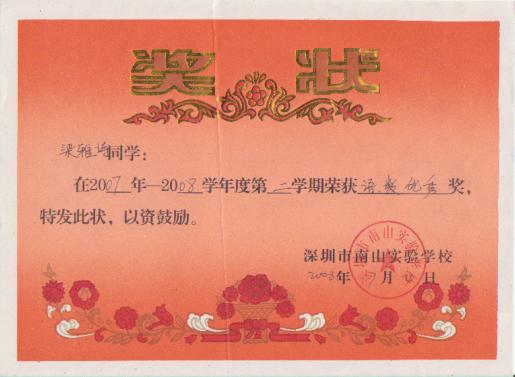 奖状
梁雅 同学:
在2007年—2008学年度第二学期荣获语数优秀奖,
特发此状,以资鼓励。
深圳市南山实验学校
2008年 月 日
深圳市南山实验学校